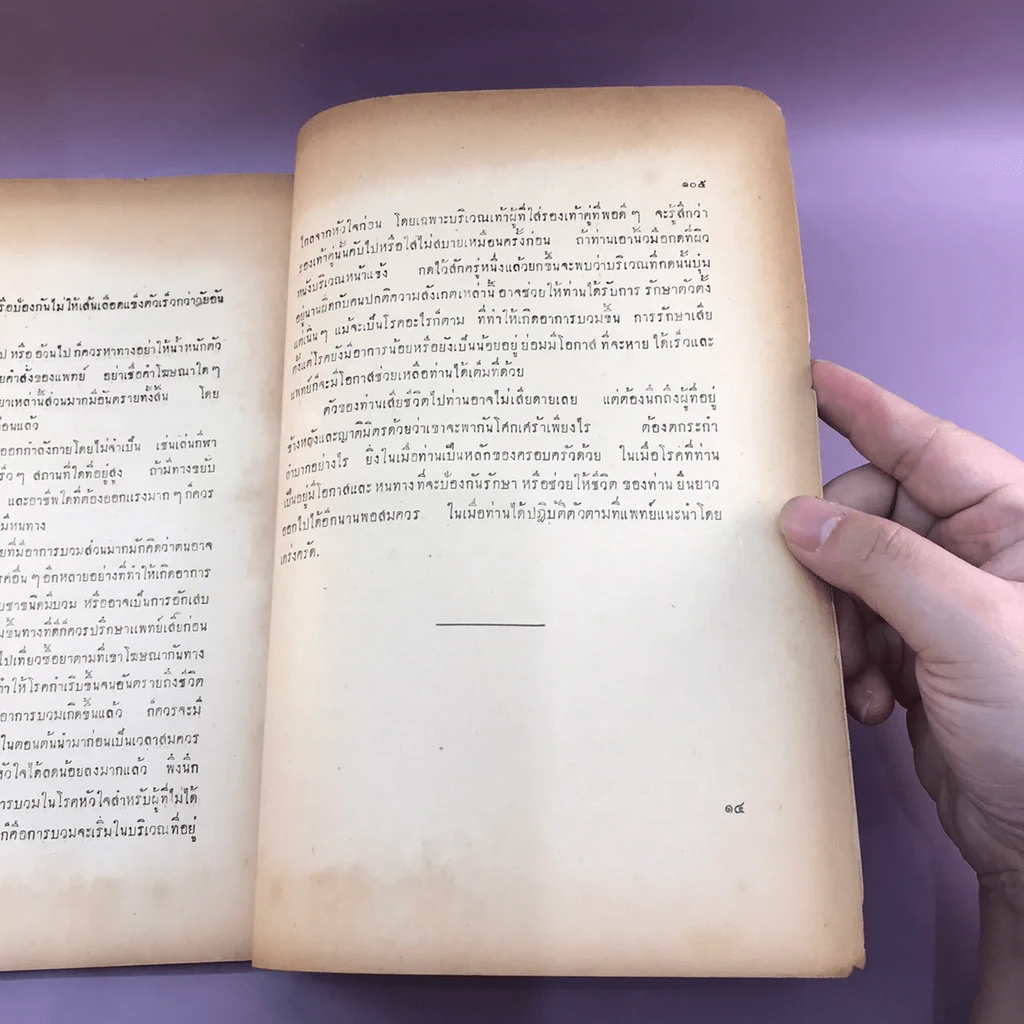 รือป้องกันไม่ให้เส้นเลือดแข็งตัวเร็วกว่าวัยอัน
ป หรือ อ้วนไป ก็ควรหาทางอย่าให้น้ำหนักตัว
ยคำสั่งของแพทย์ อย่าเชื่อคำโฆษณาใด ๆ
ยาเหล่านี้ส่วนมากมีอันตรายทั้งสิ้น โดย
ือนแล้ว
ออกกำลังกายโดยไม่จำเป็น เช่นเล่นกีฬา
ร็วๆ สถานที่ใดที่อยู่สูง ถ้ามีทางขยับ
และอาชีพใดที่ต้องออกแรงมาก ๆ ก็ควร
มีหนทาง
ยที่มีอาการบวมส่วนมากมักคิดว่าตนอาจ
รคอื่น ๆ อีกหลายอย่างที่ทำให้เกิดอาการ
บชาชนิดมีบวม หรืออาจเป็นการอักเสบ
มขึ้นทางที่ดีก็ควรปรึกษาแพทย์เสียก่อน
ไปเที่ยวซื้อยาตามที่เขาโฆษณากันทาง
ทำให้โรคกำเริบขึ้นจนอันตรายถึงชีวิต
อาการบวมเกิดขึ้นแล้ว ก็ควรจะมี
ในตอนต้นนำมาก่อนเป็นเวลาสมควร
หัวใจได้ลดน้อยลงมากแล้ว พึงนึก
ารบวมในโรคหัวใจสำหรับผู้ที่ไม่ได้
ก็คือการบวมจะเริ่มในบริเวณที่อยู่
๑๐๕
ไกลจากหัวใจก่อน โดยเฉพาะบริเวณเท้าผู้ที่ใส่รองเท้าคู่ที่พอดี ๆ จะรู้สึกว่า
รองเท้าคู่นั้นคับไปหรือใส่ไม่สบายเหมือนครั้งก่อน ถ้าท่านเอานิ้วมือกดที่ผิว
หนังบริเวณหน้าแข้ง กดไว้สักครู่หนึ่งแล้วยกขึ้นจะพบว่าบริเวณที่กดนั้นบุ๋ม
อยู่นานผิดกับคนปกติความสังเกตเหล่านี้ อาจช่วยให้ท่านได้รับการ รักษาตัวตั้ง
แต่เนิ่น ๆ แม้จะเป็นโรคอะไรก็ตาม ที่ทำให้เกิดอาการบวมขึ้น การรักษาเสีย
ตั้งแต่โรคยังมีอาการน้อยหรือยังเป็นน้อยอยู่ ย่อมมีโอกาส ที่จะหาย ได้เร็วและ
แพทย์ก็จะมีโอกาสช่วยเหลือท่านได้เต็มที่ด้วย
ตัวของท่านเสียชีวิตไปท่านอาจไม่เสียดายเลย แต่ต้องนึกถึงผู้ที่อยู่
ข้างหลังและญาติมิตรด้วยว่าเขาจะพากันโศกเศร้าเพียงไร ต้องตกระกำ
ลำบากอย่างไร ยิ่งในเมื่อท่านเป็นหลักของครอบครัวด้วย ในเมื่อโรคที่ท่าน
เป็นอยู่มีโอกาสและ หนทางที่จะป้องกันรักษา หรือช่วยให้ชีวิต ของท่าน ยืนยาว
ออกไปได้อีกนานพอสมควร ในเมื่อท่านได้ปฏิบัติตัวตามที่แพทย์แนะนำโดย
เคร่งครัด.
๑๔